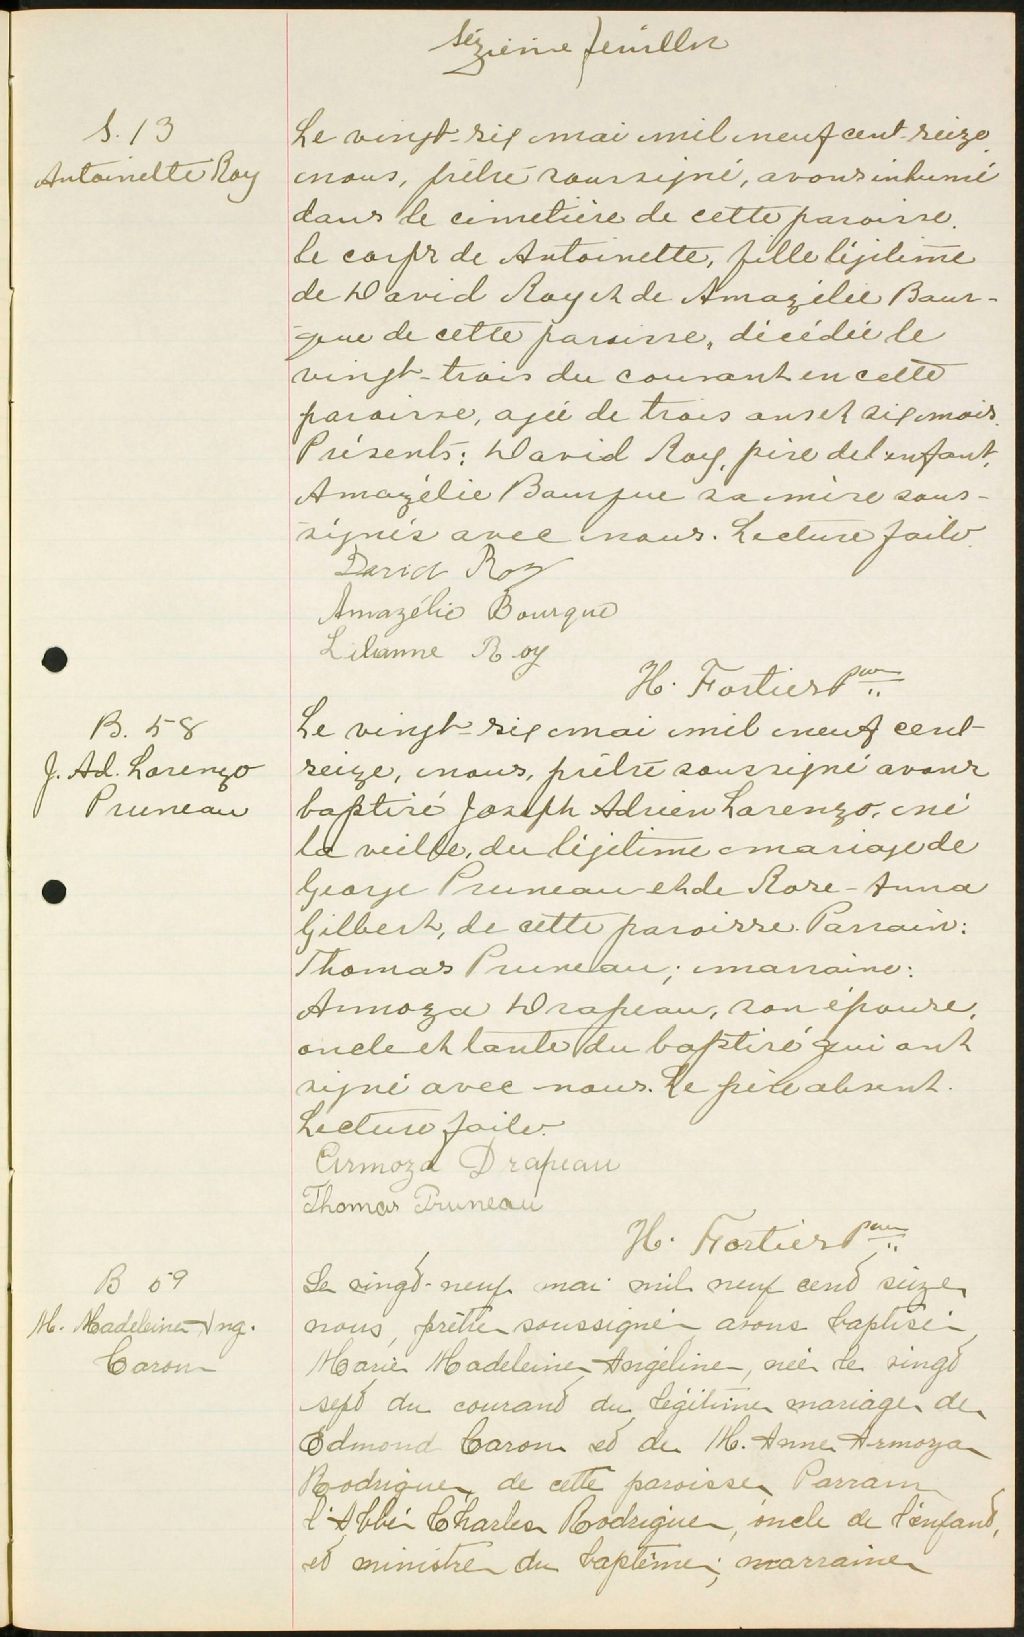 Sézième feuillet
S. 13
Antoinette Roy
Le vingt-six mai mil neuf cent-seize
nous, prêtre soussigné, avons inhumé
dans le cimetière de cette paroisse.
le corps de Antoinette, fille légitime
de David Roy et de Amazélie Bour-
-que de cette paroisse, décédée le
vingt-trois du courant en cette
paroisse, agée de trois ans et six mois.
Présents: David Roy, père de l'enfant,
Amazélie Bourque sa mère sous-
-signés avec nous. Lecture faite.
David Roy
Amazélie Bourque
Lilianne Roy
H. Fortier Ptre
B. 58
J. Ad. Lorenzo
Pruneau
Le vingt-six mai mil neuf cent
seize, nous, prêtre soussigné avons
baptisé Joseph Adrien Lorenzo, né
la veille, du légitime mariage de
George Pruneau et de Rose-Anna
Gilbert, de cette paroisse. Parrain:
Thomas Pruneau; marraine:
Armoza Drapeau, son épouse,
oncle et tante du baptisé qui ont
signé avec nous. Le père absent.
Lecture faite.
Armoza Drapeau
Thomas Pruneau
H. Fortier Ptre
B 59
M. Madeleine Ang.
Caron
Le vingt-neuf mai mil neuf cent seize
nous, prêtre soussigné avons baptisé
Marie Madeleine Angéline, née le vingt
sept du courant du légitime mariage de
Edmond Caron et de M. Anne Armoza
Rodrigue, de cette paroisse, Parrain
l'Abbé Charles Rodrigue, oncle de l'enfant,
et ministre du baptême; marraine